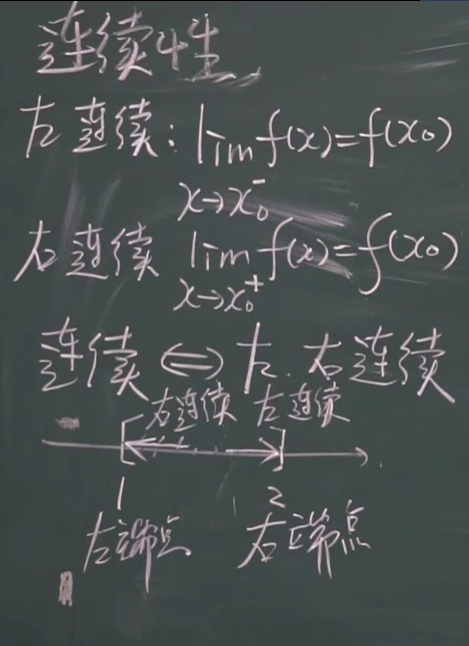 连续性
左连续: lim f(x)=f(x₀)
x→x₀⁻
右连续 lim f(x)=f(x₀)
x→x₀⁺
连续 ⇔ 左.右连续
右连续 左连续
1 2
左端点 右端点